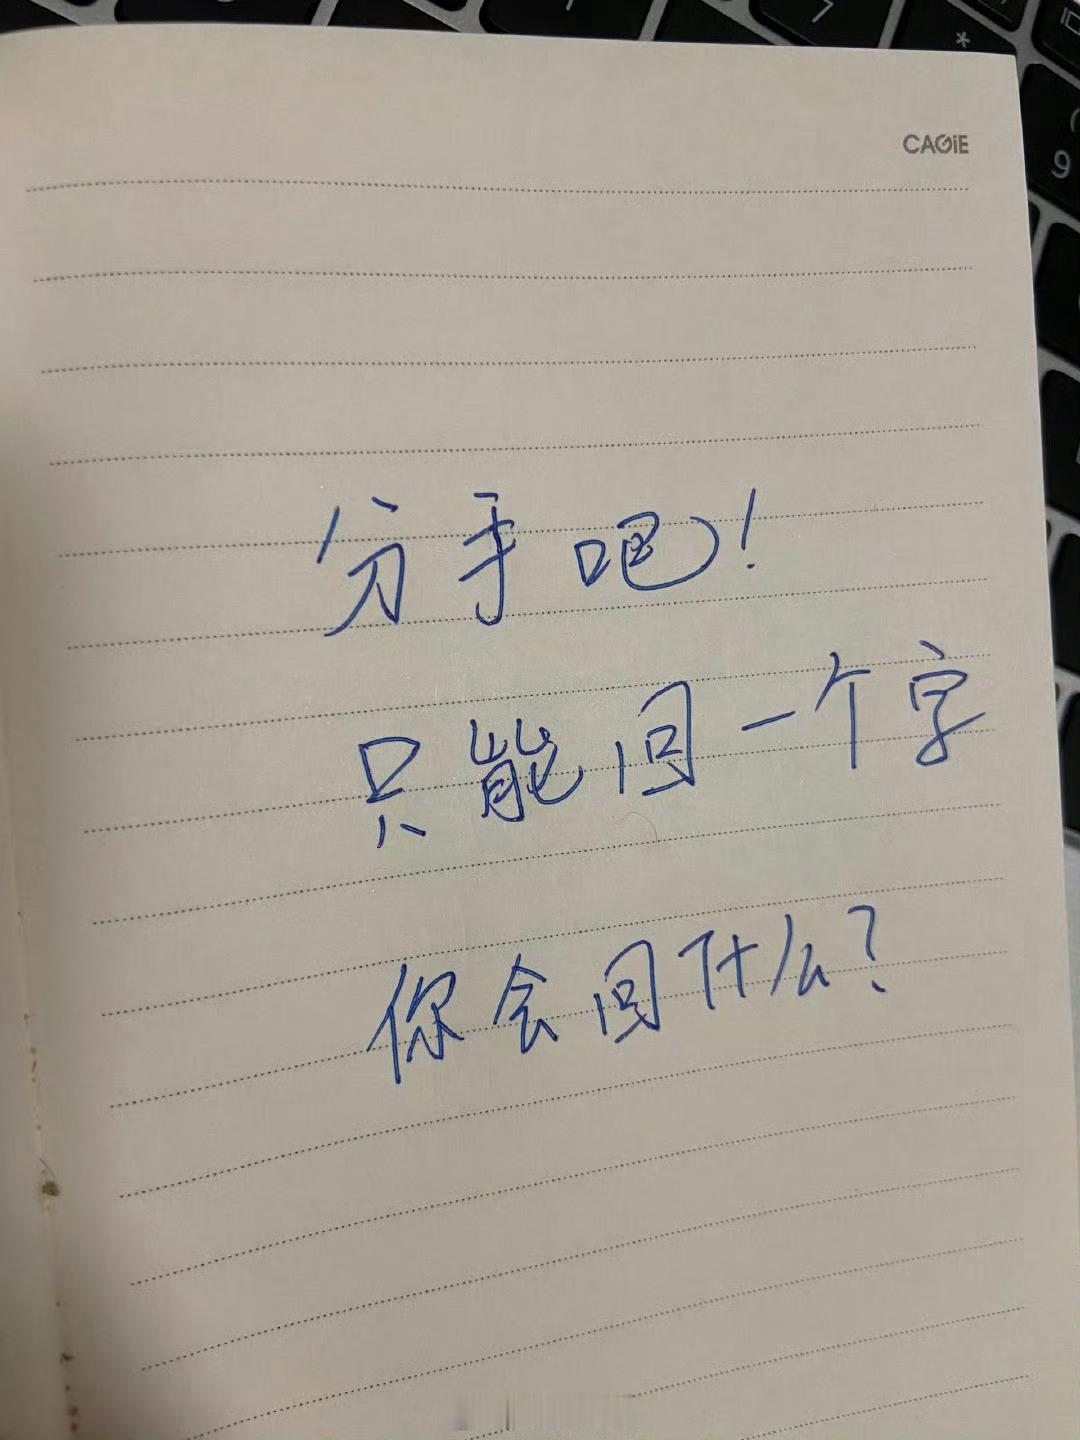 CAGiE
分手吧！
只能回一个字
你会回什么？